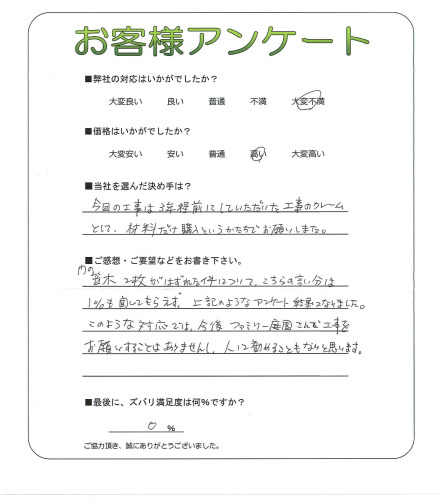 お客様アンケート
■弊社の対応はいかがでしたか？
大変良い 良い 普通 不満 大変不満
■価格はいかがでしたか？
大変安い 安い 普通 高い 大変高い
■当社を選んだ決め手は？
今回の工事は3年程前にしていただいた工事のクレーム
として、材料だけ購入というかたちでお願いしました。
■ご感想・ご要望などをお書き下さい。
門の
笠木 2枚がはずれた件について、こちらの言い分は
1%も聞いてもらえず、上記のようなアンケート結果になりました。
このような対応では、今後 ファミリー庭園さんで工事を
お願いすることはありませんし、人に勧めることもないと思います。
■最後に、ズバリ満足度は何%ですか？
0 %
ご協力頂き、誠にありがとうございました。